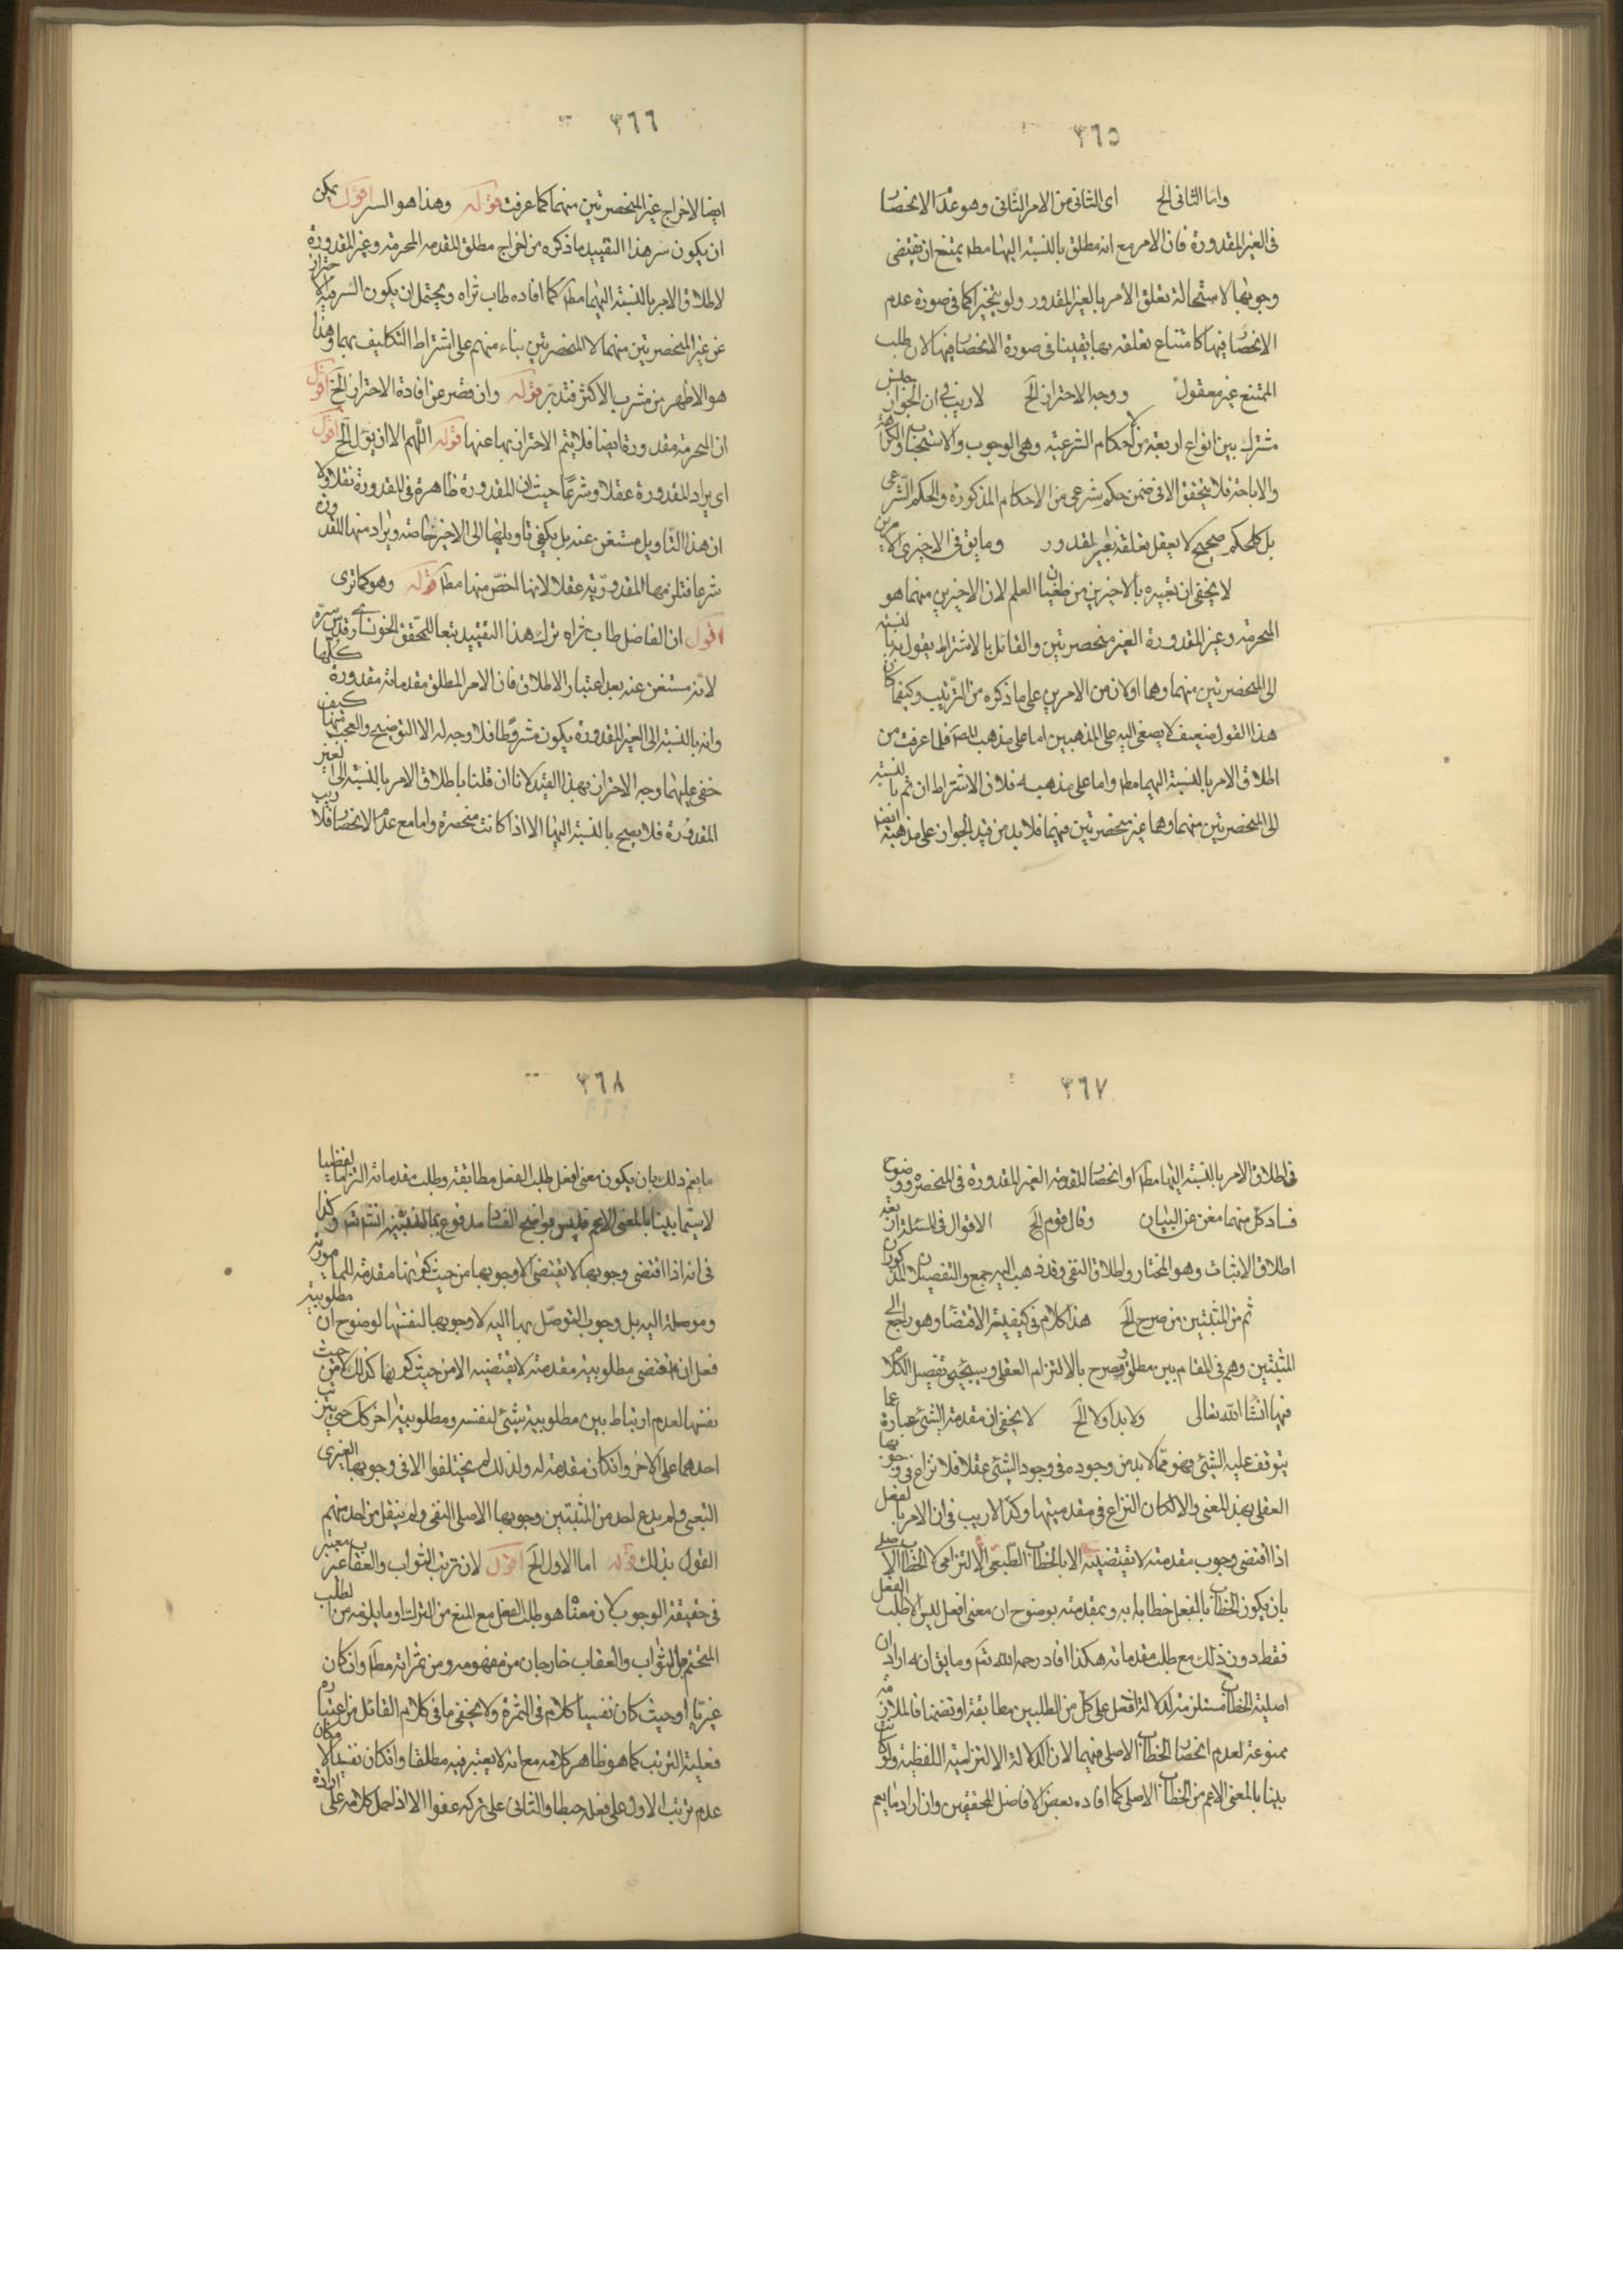 ٣٦٥
واما الثانى الخ اى الثانى من الامر الثانى وهو عدم الانحصار
فى الغير المقدورة فان الامر مع انه مطلق بالنسبة اليها مطه يمتنع ان يقتضى
وجوبها لاستحالة تعلق الامر بالغير المقدور ولو تخييرا كما فى صورة عدم
الانحصار فيها كامتناع تعلقه بها يقينا فى صورة الانحصار فيها لان طلب
الممتنع غير معقول ووجه الاحتراز الخ لا ريب فى ان الجواز جنس
مشترك بين انواع اربعة من احكام الشرعية وهى الوجوب والاستحباب والكراهة
والاباحة فلا يتحقق الا فى ضمن حكم شرعى من الاحكام المذكورة والحكم الشرعى
بل كل حكم صحيح لا يعقل تعلقه بغير المقدور وما يق فى الاخيرى الامرين
لا يخفى ان تعبيره بالاخيرين من طغيان العلم لان الاخيرين منهما هو
المحرمة وغير المقدورة الغير منحصرتين والقائل بالاشتراط يقول به بالنسبة
الى المنحصرتين منهما وهما اولان من الامرين على ما ذكره من الترتيب وكيفما كان
هذا القول ضعيف لا يصغى اليه على المذهبين اما على مذهب المصه فلما عرفت من
اطلاق الامر بالنسبة اليهما مطه واما على مذهبه فلان الاشتراط ان تم بالنسبة
الى المنحصرتين منهما وهما غير منحصرتين فيهما فلا بد من قيد الجواز على مذهبه ايضا
٣٦٦
ايضا لاخراج غير المنحصرتين منهما كما عرفت قوله وهذا هو السر اقول يمكن
ان يكون سر هذا التقييد ما ذكره من اخراج مطلق المقدمة المحرمة وغير المقدورة
لاطلاق الامر بالنسبة اليهما مطه كما افاده طاب ثراه ويحتمل ان يكون السر فيه الاحتراز
عن غير المنحصرتين منهما لا المنحصرتين بناء منهم على اشتراط التكليف بهما وهذا
هو الاظهر من مشرب الاكثر فتدبر قوله وان قصر عن افادة الاحتراز الخ اقول
ان المحرمة مقدورة ايضا فلا يتم الاحتراز بها عنها قوله اللهم الا ان يقول الخ اقول
اى يراد المقدورة عقلا وشرعا حيث ان المقدورة ظاهرة فى المقدورة نقلا ولا
ان هذا التاويل مستغن عنه بل يكفى تاويلها الى الاخير خاصة ويراد منها المقدورة
شرعا فتلزمها المقدورية عقلا لانها اخص منها مطه قوله وهو كما ترى
اقول ان الفاضل طاب ثراه ترك هذا التقييد تبعا للمحقق الخونسارى قدس سره
لانه مستغن عنه بعد اعتبار الاطلاق فان الامر المطلق مقدماته مقدورة كلها
وانه بالنسبة الى الغير المقدورة يكون مشروطا فلا وجه له الا التوضيح والعجب منهما كيف
خفى عليهما وجه الاحتراز بهذا القيد لانا ان قلنا باطلاق الامر بالنسبة الى الغير
المقدورة فلا يصح بالنسبة اليها الا اذا كانت منحصرة واما مع عدم الانحصار فلا ريب
٣٦٧
فى اطلاق الامر بالنسبة اليها مطه او انحصار المقدمة الغير المقدورة فى المنحصرة ووضوح
فساد كل منهما مغن عن البيان وقال قوم الخ الاقوال فى المسئلة اربعة
اطلاق الاثبات وهو المختار واطلاق النفى وقد ذهب اليه جمع والتفصيلان المذكوران
ثم من المثبتين من صرح الخ هذا كلام فى كيفية الاقتضاء وهو راجع الى
المثبتين وهم فى المقام بين مطلق ومصرح بالالتزام العقلى وسيجيئ تفصيل الكلام
فيها انشاء الله تعالى ولا بد اولا الخ لا يخفى ان مقدمة الشئ عبارة عما
يتوقف عليه الشئ فهو مما لا بد من وجوده فى وجود الشئ عقلا فلا نزاع فى وجوبها
العقلى بهذا المعنى والا لكان النزاع فى مقدميتها وكذا لا ريب فى ان الامر بالفعل
اذا اقتضى وجوب مقدمته لا تقتضيه الا بالخطاب التبعى الالتزامى لا الخطاب الاصلى
بان يكون الخطاب بالفعل خطابا به وبمقدمته بوضوح ان معنى افعل ليس الا طلب الفعل
فقط دون ذلك مع طلب مقدماته هكذا افاد رحمه الله ثم وما يق انه اراد ان
اصلية الخطاب مستلزمة لدلالة افعل على كل من الطلبين مطابقة او تضمنا فالملازمة
ممنوعة لعدم انحصار الخطاب الاصلى فيهما لان الدلالة الالتزامية اللفظية ولو كانت
بينا بالمعنى الاعم من الخطاب الاصلى كما افاده بعض الافاضل المحققين وان اراد ما يعم
٣٦٨
ما يعم ذلك بان يكون معنى افعل طلب الفعل مطابقة وطلب مقدماته التزاما لفظيا
لا سيما بينا بالمعنى الاعم فليس بواضح الفساد مدفوع بما وكذا
فى انه اذا اقتضى وجوبها لا يقتضى الا وجوبها من حيث كونها مقدمة للمامور به
وموصلة اليه بل وجوب التوصل بها اليه لا وجوبها لنفسها لوضوح ان مطلوبية
فعل ان اقتضى مطلوبية مقدمته لا يقتضيه الا من حيث كونها كذلك لا من حيث
نفسها لعدم ارتباط بين مطلوبية شئ لنفسه ومطلوبية اخر كك حتى يترتب
احدهما على الاخر وان كان مقدمة له ولذلك لم يختلفوا الا فى وجوبها الغيرى
التبعى ولم يدع احد من المثبتين وجوبها الاصلى النفسى ولم ينقل من احد منهم
القول بذلك قوله اما الاول الخ اقول لان ترتب الثواب والعقاب غير معتبر
فى حقيقة الوجوب لان معناه هو طلب الفعل مع المنع من الترك او ما يلزمه من الطلب
المتحتم بل الثواب والعقاب خارجان من مفهومه ومن ثمراته مطه وان كان
غيريا او حيث كان نفسيا كلام فى الثمرة ولا يخفى ما فى كلام القائل من اعتبار
فعلية الترتب كما هو ظاهر كلامه مع انه لا يعتبر فيه مطلقا وان كان نفسيا لامكان
عدم ترتب الاول على فعله حبطا والثانى على تركه عفوا الا اذا حمل كلامه على ارادة